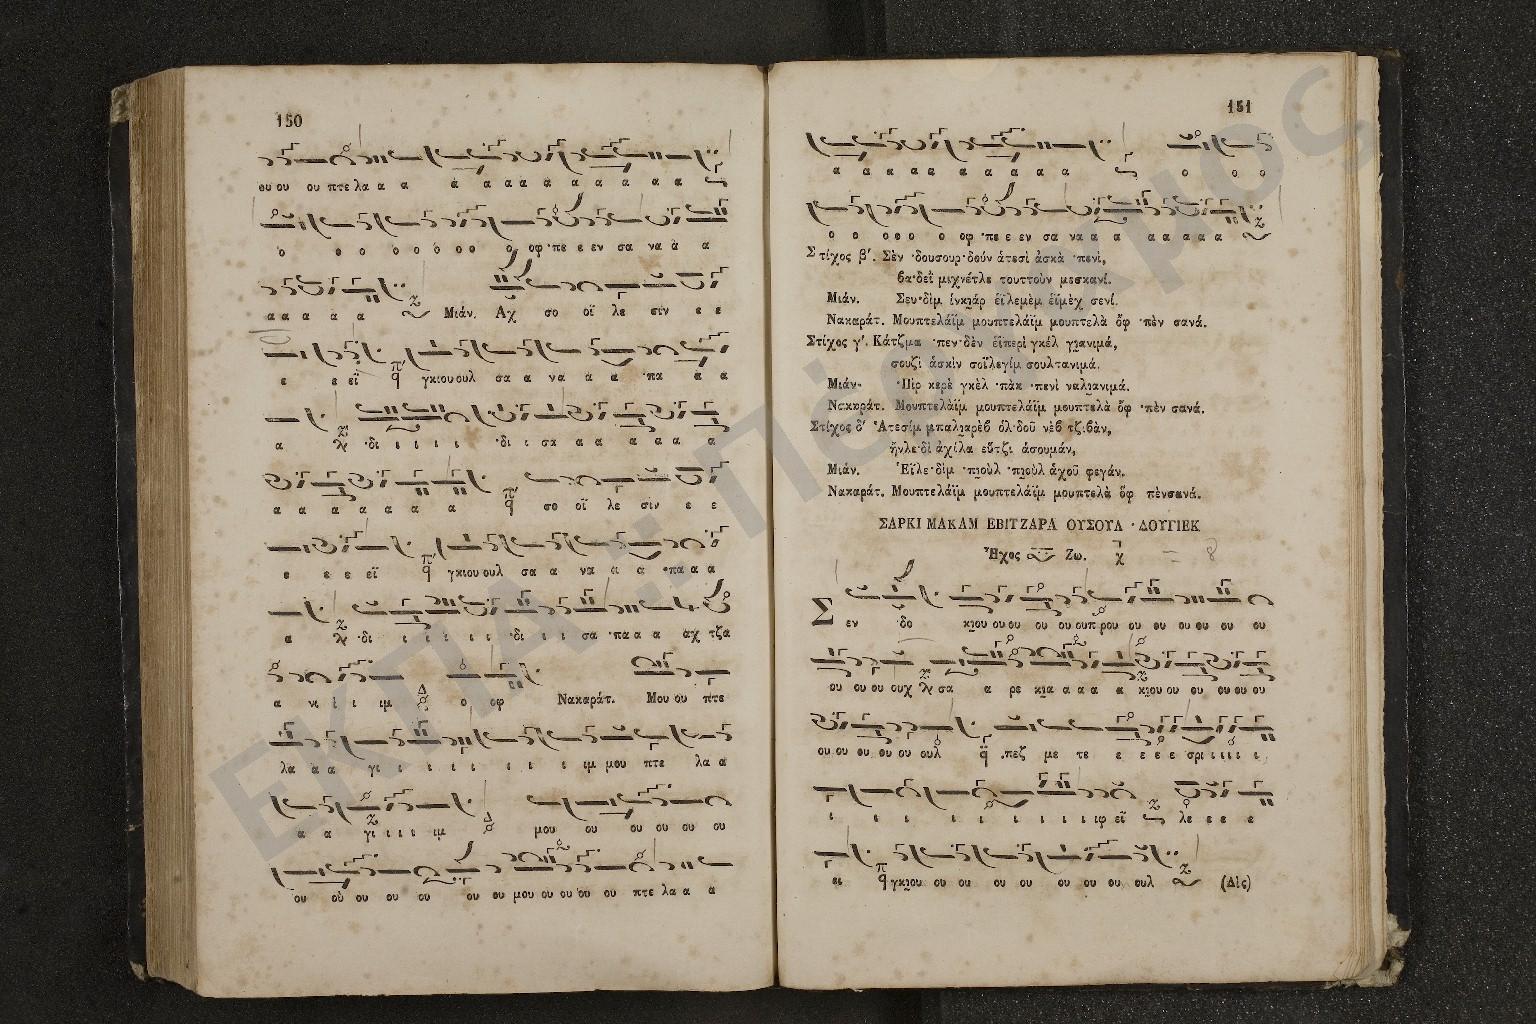 150
ου ου ου πτε λα α α α α α α α α α α α α α
ο ο ο ο ο ο ο ο ο οφ ·πε ε εν σα να ὰ α
α α α α α Μιάν. Αχ σο οϊ λε σιν ε ε
ε ε εϊ γκιου ουλ σα α να ὰ ὰ ·πα α α
α ·δι ι ι ι ι ·δι ι σα α α α α α
α α α α α α α σο οϊ λε σιν ε ε
ε ε ε εϊ γκιου ουλ σα α να α α ·πα α α
α ·δι ι ι ι ι ι ·δι ι ι σα ·πα α α αχ τζα
α νι ι ι ιμ ο οφ Νακαράτ. Μου ου πτε
λα ὰ α γι ι ι ι ι ι ι ιμ μου πτε λα α
α α γι ι ι ι ιμ μου ου ου ου ου ου
ου οὺ ου ου ου ου ου μου ου ου οὺ ου πτε λα α α
151
α α α α α α α α α α ο ο ο
ο ο ο ο ο ο οφ ·πε ε εν σα να α α α α α α α
Στίχος β′. Σὲν ·δουσουρ·δοὺν ἀτεσὶ ἀσκὰ ·πενὶ,
θα·δεῒ μιχνέτλε τουττοὺν μεσκανί.
Μιάν. Σευ·δὶμ ἰνκιὰρ ἐῒλεμὲμ ἐῒμὲχ σενί.
Νακαράτ. Μουπτελάϊμ μουπτελάϊμ μουπτελὰ ὂφ ·πὲν σανά.
Στίχος γ′. Κάτζμα ·πεν·δὲν ἐῒπερὶ γκέλ γιανιμά,
σουζὶ ἀσκὶν σοϊλεγὶμ σουλτανιμά.
Μιάν· ·Πὶρ κερὲ γκὲλ ·πὰκ ·πενὶ ναλιανιμά.
Νακαράτ. Μουπτελὰϊμ μουπτελάϊμ μουπτελὰ ὂφ ·πὲν σανά.
Στίχος δ′ Ἀτεσὶμ μπαλιαρὲβ ὀλ·δοῦ νὲβ τζιβὰν,
ἤνλε·δὶ ἀχίλα εὔτζι ἀσουμάν,
Μιάν. Ἐῒλε·δὶμ ·πιοὺλ ·πιοὺλ ἀχοῦ φεγάν.
Νακαράτ. Μουπτελάϊμ μουπτελάϊμ μουπτελὰ ὂφ πὲνσανά.
ΣΑΡΚΙ ΜΑΚΑΜ ΕΒΙΤΖΑΡΑ ΟΥΣΟΥΛ ·ΔΟΥΓΙΕΚ
Ἦχος Ζω.
Σεν ·δο κιου ου ου ου ου ουπ ρου ου ου ου ου ου ου
ου ου ου ουχ σα α ρε κια α α α α κιου ου ου ου ου ου
ου ου ου ου ου ουλ .πεζ με τε ε ε ε ε σρι ι ι ι ι
ι ι ι ι ι ι ι ι ι ιφ εϊ λε ε ε ε
ει γκιου ου ου ου ου ου ου ου ουλ (Δὶς)
ΕΚΠΑ